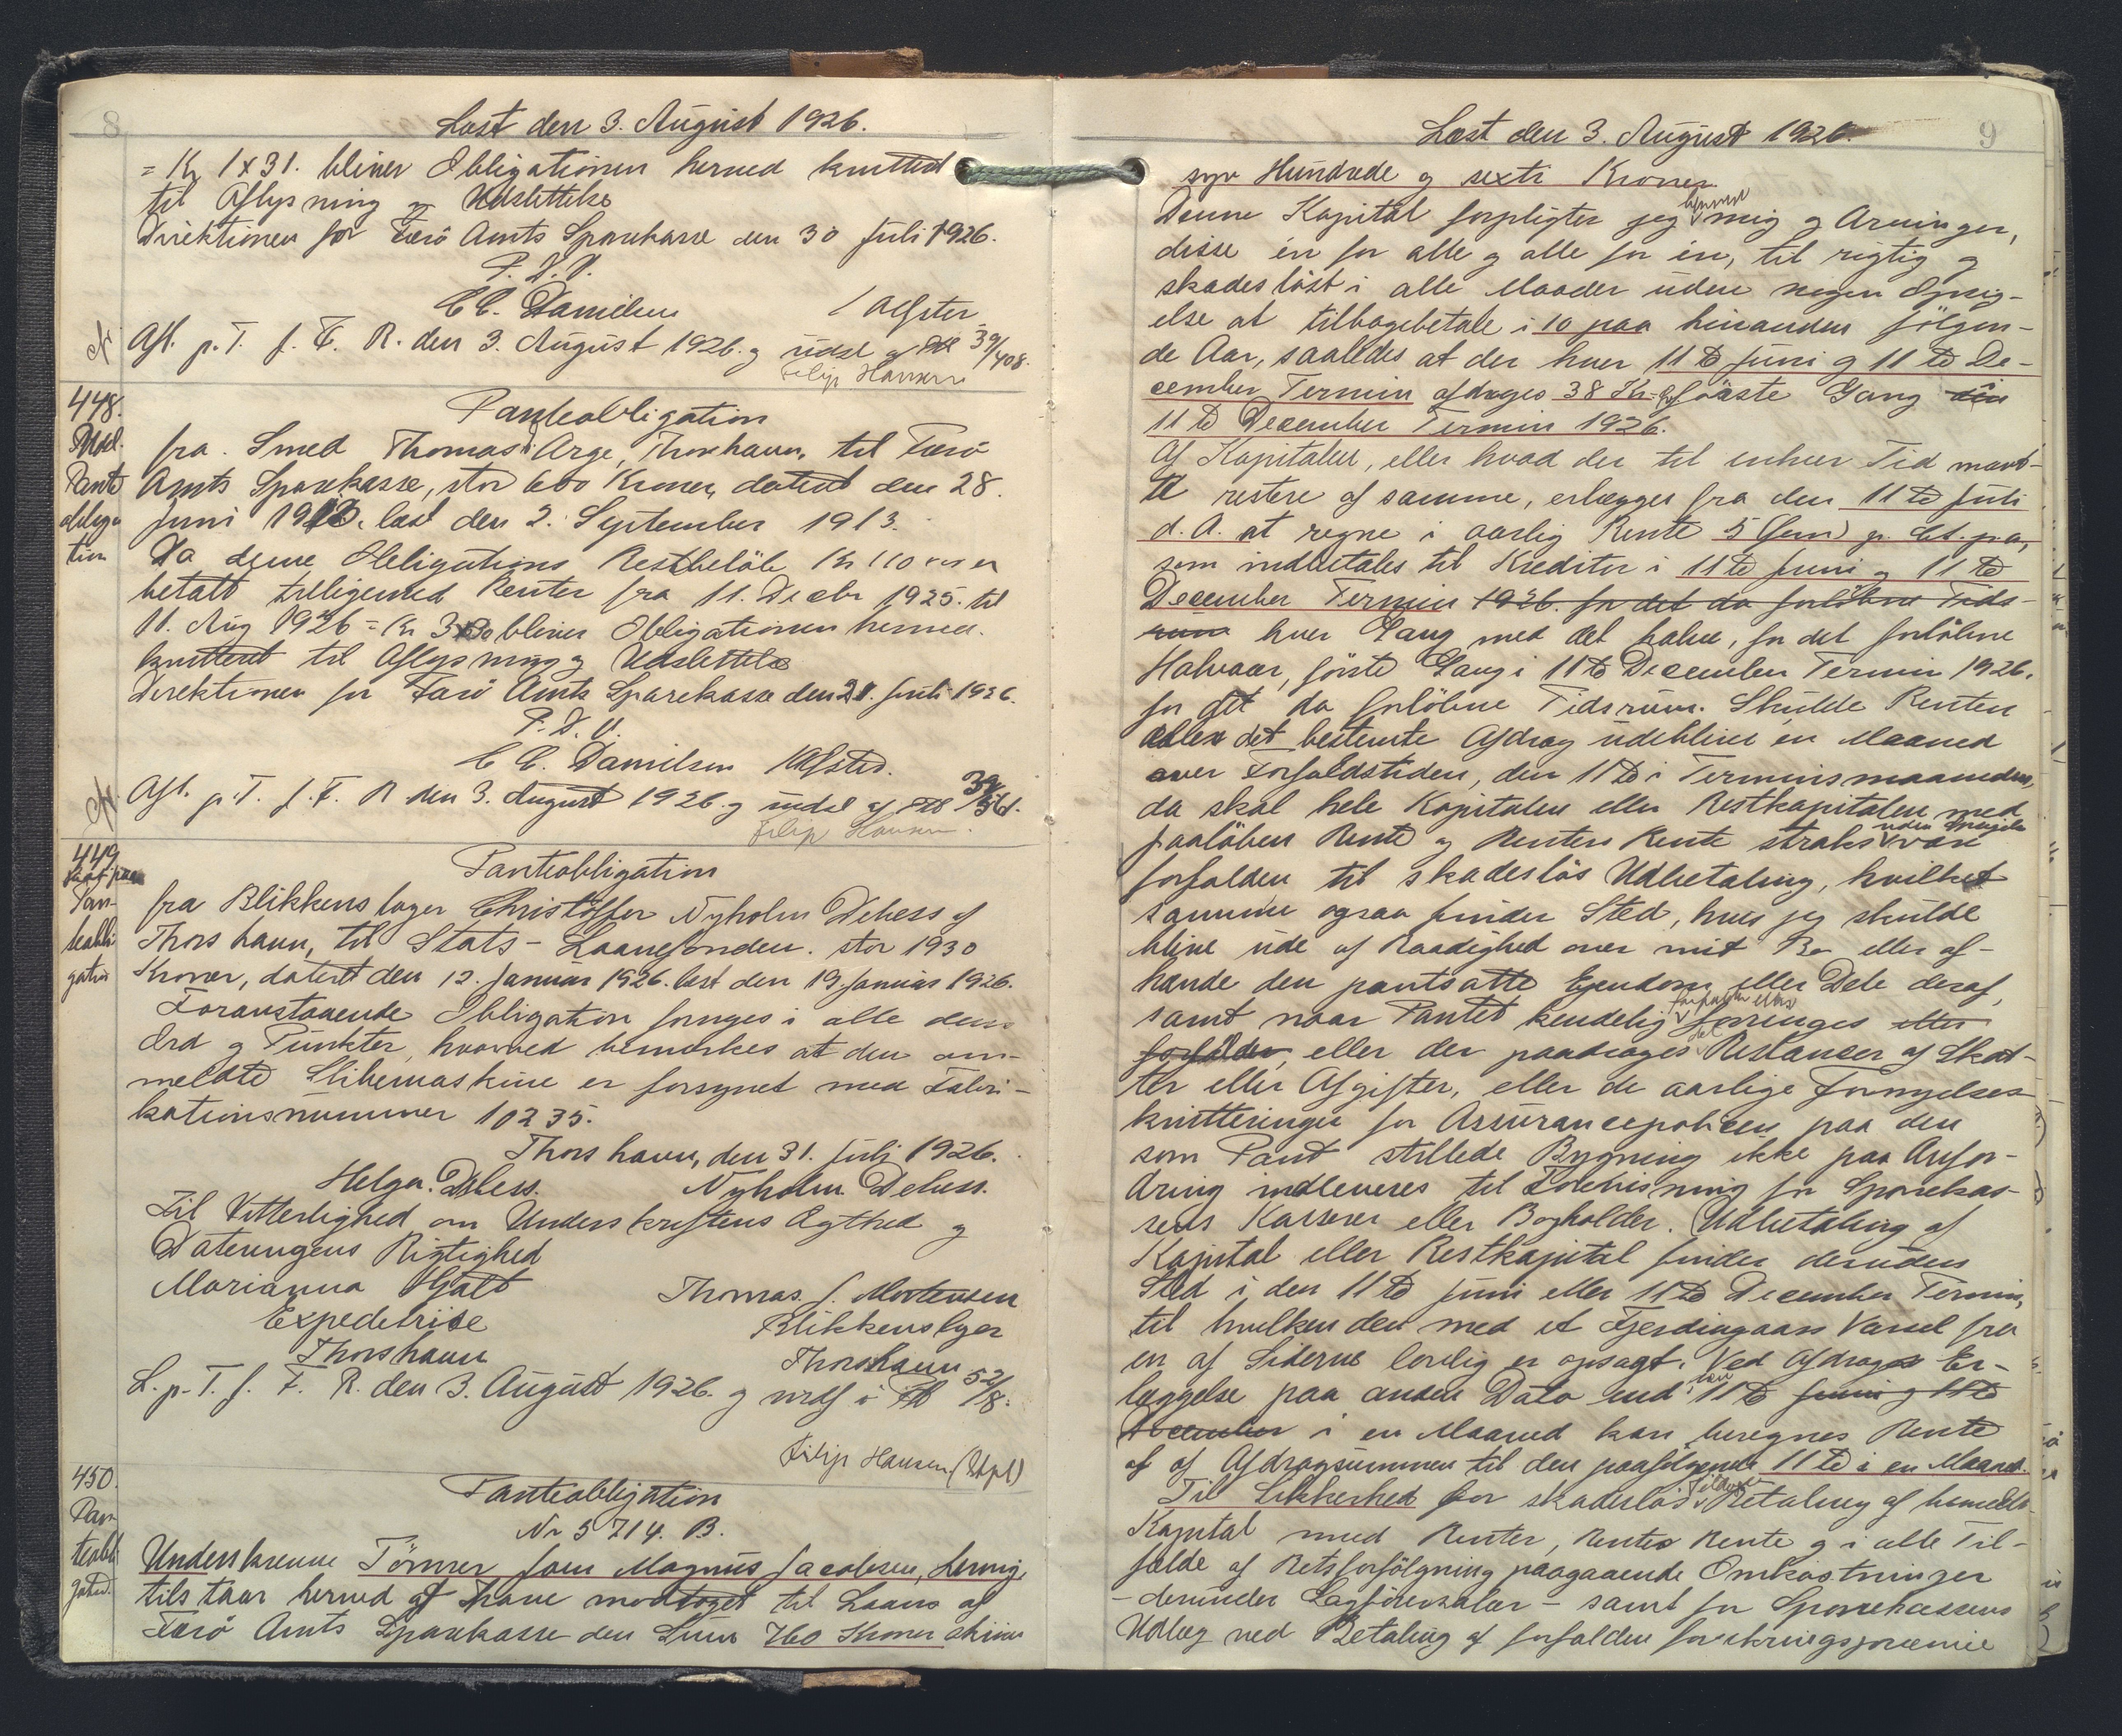 8
Læst den 3. August 1926.
= Kr 1 x 31. bliver Obligationen herved kvitteret
til Aflysning og Udslettelse
Direktionen for Færö Amts Sparekasse den 30 Juli 1926.
P. D. V.
C C. Danielsen / Alfster
Afl. p. T. f. F. R. den 3. August 1926. og udsl af PB 39/408.
Filip Hansen
448.
Udsl.
Pante
obliga
tion
Panteobligation
fra Smed Thomas Arge, Thorshavn, til Færö
Amts Sparekasse, stor 600 Kroner, dateret den 28.
Juni 1913. læst den 2. September 1913.
Da denne Obligations Restbelöb Kr 110 er
betalt tilligemed Renter fra 11. Decbr 1925. til
11. Aug 1926 = Kr bliver Obligationen herved
kvitteret til Aflysning og Udslettelse
Direktionen for Færö Amts Sparekasse den 21. Juli 1926.
P. D. V.
C C. Danielsen
Afl. p. T. f. F. R den 3. August 1926. og udsl af PB
Filip Hansen.
449
Pan-
teobli
gation
Panteobligation
fra Blikkenslager Christoffer Nyholm Debess af
Thorshavn, til Stats-Laanefonden. stor 1930
Kroner, dateret den 12. Januar 1926. læst den 19. Januar 1926.
Foranstaaende Obligation fornyes i alle dens
Ord og Punkter, hvorved bemærkes at den an-
meldte Slibemaskine er forsynet med Fabri-
kationsnummer 10235.
Thorshavn, den 31. Juli 1926.
Helga Debess. Nyholm Debess.
Til Vitterlighed om Underskriftens Ægthed og
Dateringens Rigtighed
Marianna Hjalt Thomas. J. Mortensen
Expeditrise Blikkenslger
Thorshavn Thorshavn
L. p. T. f. F. R. den 3. August 1926. og indf i PB 52/8.
Filip Hansen (Stpl)
450.
Pan
teobli
gation.
Panteobligation
Nr 5714. B.
Underskrevne Tömrer Joen Magnus Jacobsen, hervig,
tilstaar herved at have modtaget til Laans af
Færö Amts Sparekasse den Sum 760 Kroner skriver
9
Læst den 3. August 1926.
syv Hundrede og sexti Kroner.
Denne Kapital forpligter jeg herved mig og Arvinger,
disse én for alle og alle for én, til rigtig og
skadeslöst i alle Maader uden nogen Opsig-
else at tilbagebetale i 10 paa hinanden fölgen-
de Aar, saaledes at der hver 11 te Juni og 11 te De-
cember Termin afdrages 38 Kr. förste Gang den
11 te December Termin 1926.
Af Kapitalen, eller hvad der til enhver Tid maat-
te restere af samme, erlægges fra den 11 te Juli
d. A. at regne i aarlig Rente 5 (fem) p. ct. p. a,
som indbetales til Kreditor i 11 te Juni og 11 te
December Termin 1926. for det da forlöbne Tids-
rum hver Gang med det halve, for det forlöbne
Halvaar, förste Gang i 11 te December Termin 1926.
for det da forlöbne Tidsrum. Skulde Renten
eller det bestemte Afdrag udeblive én Maaned
over Forfaldstiden, den 11 te i Terminsmaaneden,
da skal hele Kapitalen eller Restkapitalen med
paalöben Rente og Renters Rente straks uden Opsigelse være
forfalden til skadeslös Udbetaling, hvilket
samme ogsaa finder Sted, hvis jeg skulde
blive ude af Raadighed over mit Bo eller af-
hænde den pantsatte Ejendom eller Dele deraf,
samt naar Pantet kendelig forfalder eller forringes eller
forfalder, eller der paadrages Restancer af Skat-
ter eller Afgifter, eller de aarlige Fornyelses
kvitteringer for Assurancepolicen paa den
som Pant stillede Bygning ikke paa Anfor-
dring indleveres til Forevisning for Sparekas-
sens Kasserer eller Bogholder. Udbetaling af
Kapital eller Restkapital finder desuden
Sted i den 11 te Juni eller 11 te December Termin,
til hvilken den med et Fjerdingaars Varsel fra
en af Siderne lovlig er opsagt. Ved Afdrags Er-
læggelse paa anden Dato end den 11 te Juni og 11 te
December i en Maaned kan beregnes Rente
af af Afdragsummen til den paafölgende 11 te i en Maaned.
Til Sikkerhed for skadeslös Betaling af bemeldte
Kapital med Renter, Renters Rente og i alle Til-
fælde af Retsforfölgning paagaaende Omkostninger
- derunder Sagförersalær - samt for Sparekassens
Udlæg ved Betaling af forfalden forsikringspræmie